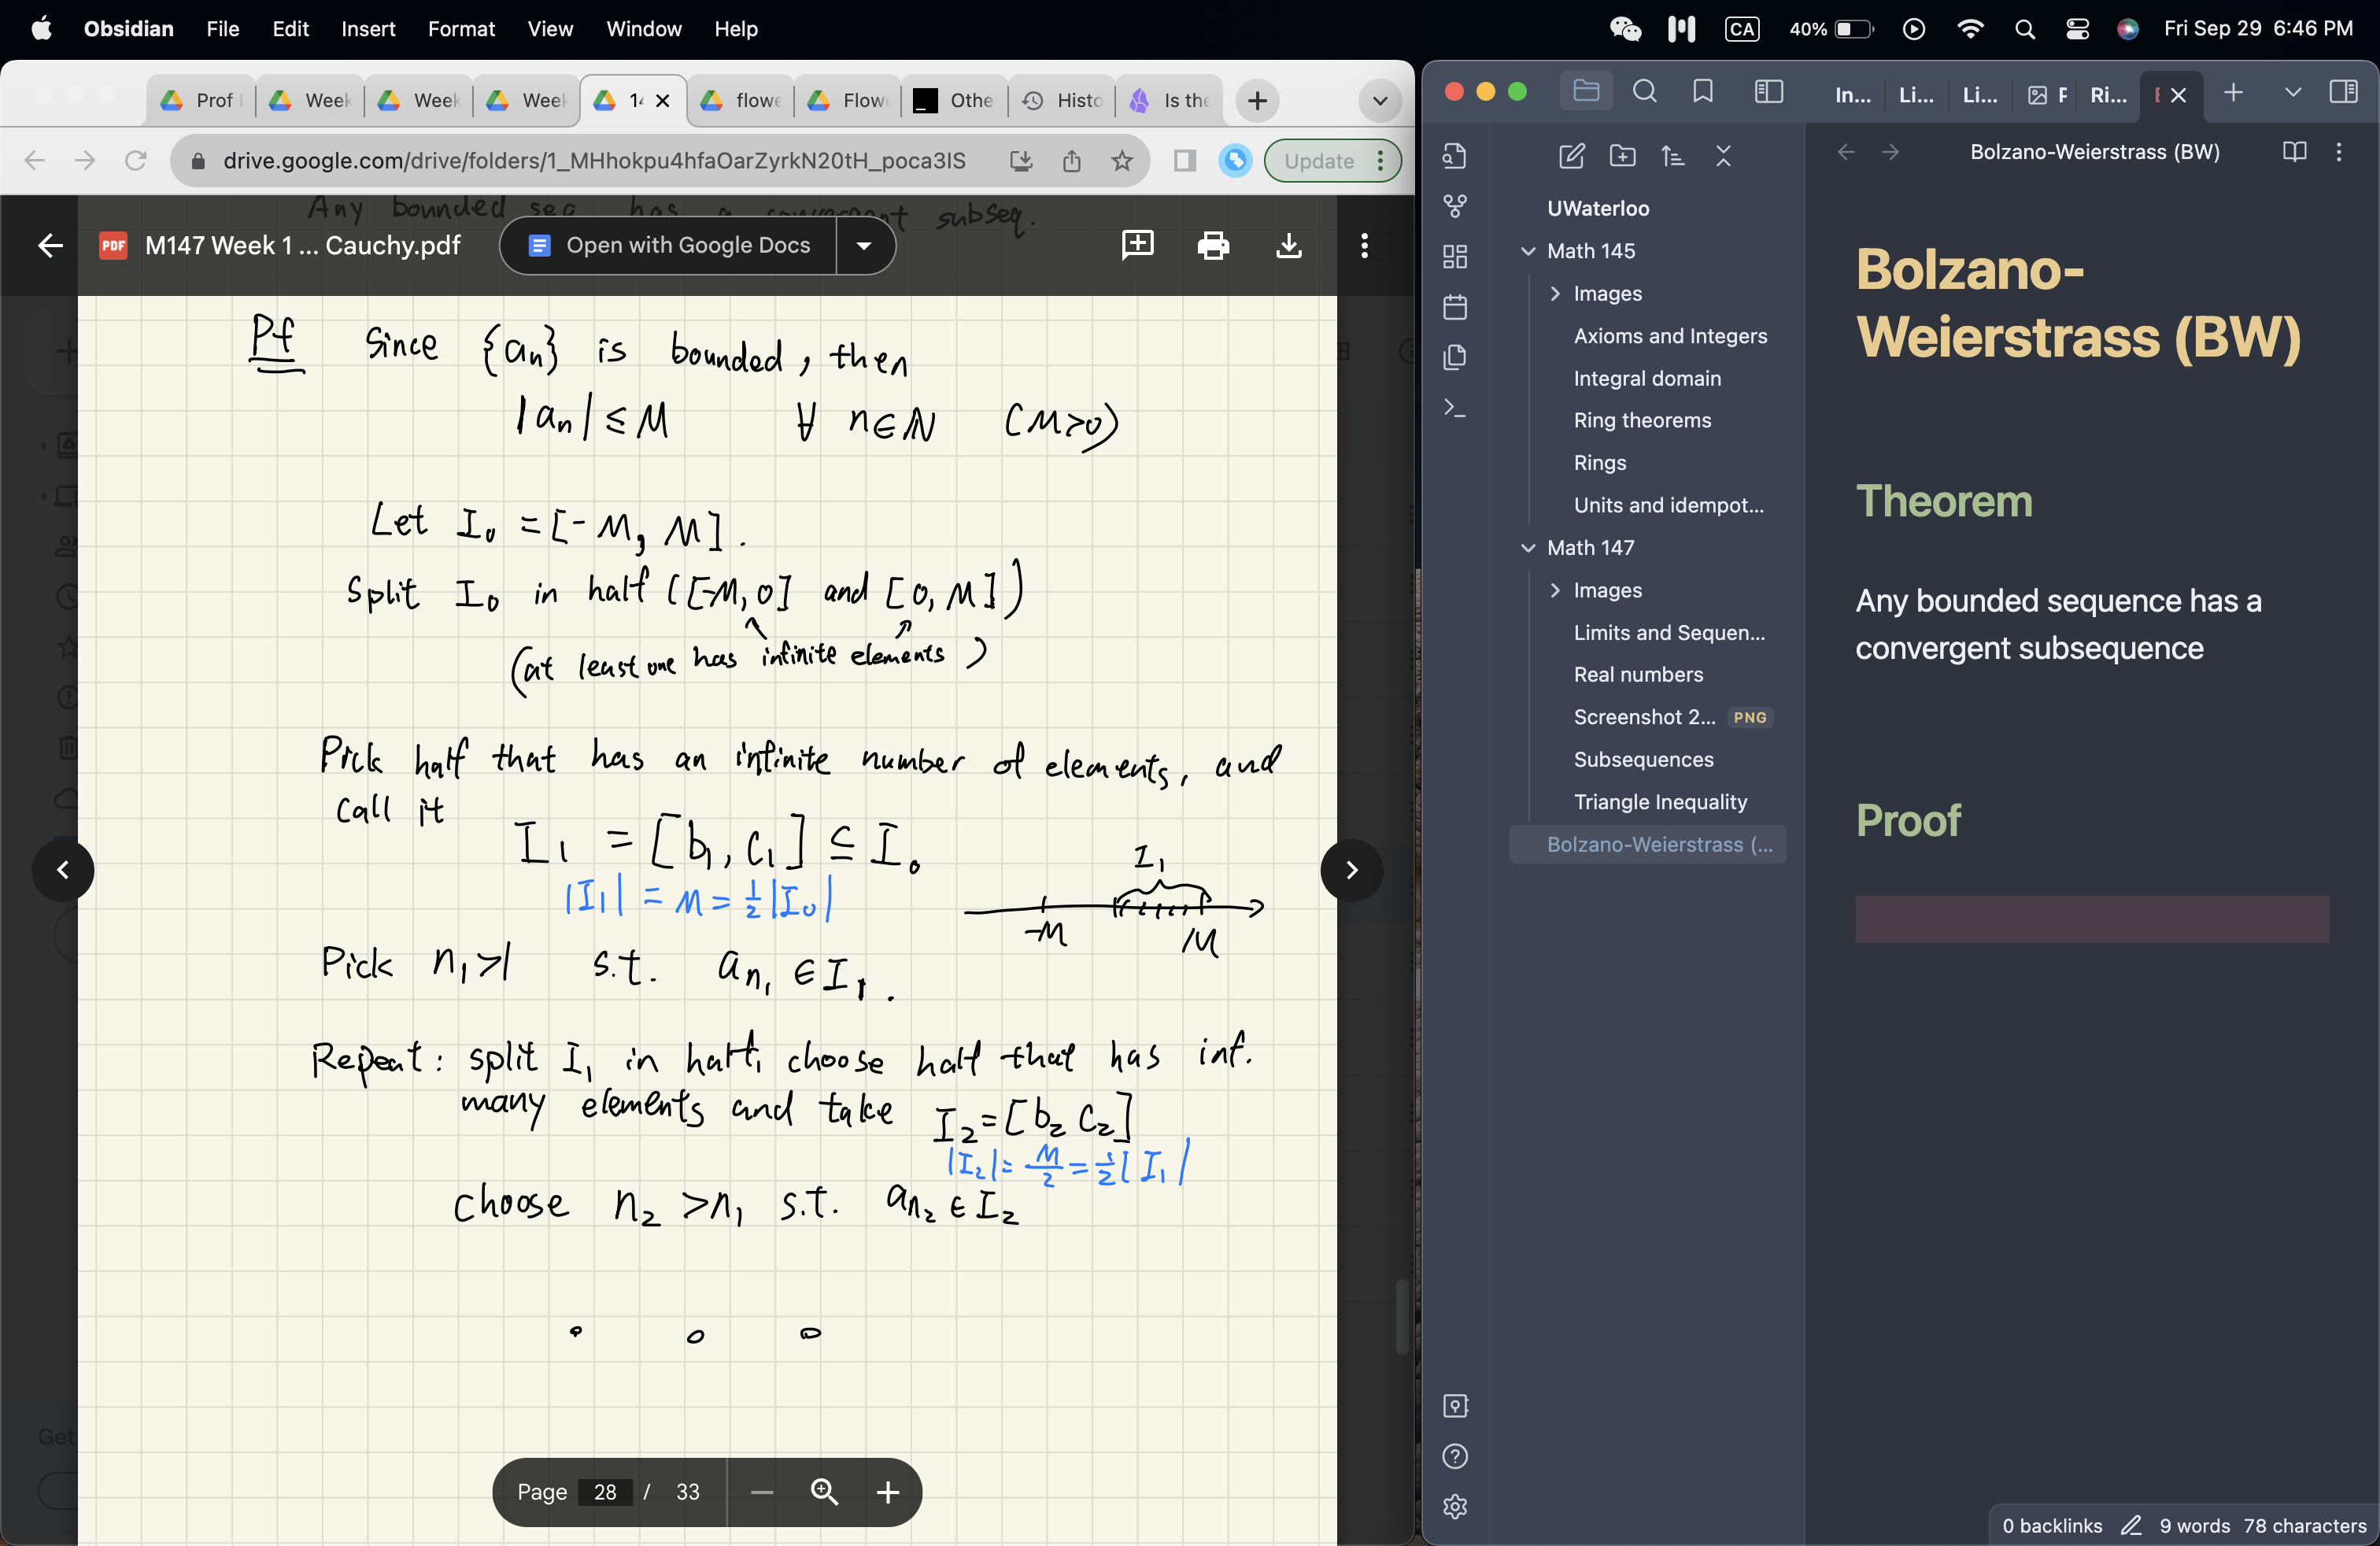 Obsidian File Edit Insert Format View Window Help
CA 40% Fri Sep 29 6:46 PM
Prof Week Week Week 14 flowe Flow Othe Histo Is the
drive.google.com/drive/folders/1_MHhokpu4hfaOarZyrkN20tH_poca3IS
Update
Any bounded seq. has a convergent subseq.
PDF M147 Week 1 ... Cauchy.pdf
Open with Google Docs
Pf Since {an} is bounded, then
|an| ≤ M ∀ n∈ℕ (M>0)
Let I₀ = [-M, M].
Split I₀ in half ([-M, 0] and [0, M])
(at least one has infinite elements)
Pick half that has an infinite number of elements, and
call it
I₁ = [b₁, c₁] ⊆ I₀
|I₁| = M = ½|I₀|
I₁
-M M
Pick n₁>1 s.t. aₙ₁ ∈ I₁.
Repeat: split I₁ in half, choose half that has inf.
many elements and take I₂=[b₂ c₂]
|I₂| = M/2 = ½|I₁|
choose n₂ >n₁ s.t. aₙ₂ ∈ I₂
Get
Page 28 / 33
In... Li... Li... Ri...
Bolzano-Weierstrass (BW)
UWaterloo
Math 145
Images
Axioms and Integers
Integral domain
Ring theorems
Rings
Units and idempot...
Math 147
Images
Limits and Sequen...
Real numbers
Screenshot 2... PNG
Subsequences
Triangle Inequality
Bolzano-Weierstrass (...
Bolzano-
Weierstrass (BW)
Theorem
Any bounded sequence has a
convergent subsequence
Proof
0 backlinks 9 words 78 characters